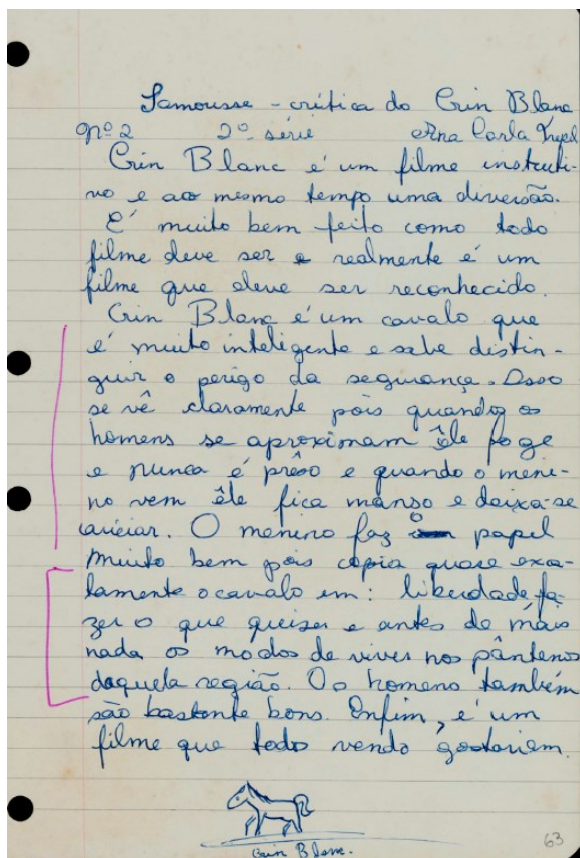 Samousse - crítica do Crin Blanc
Nº 2 2ª série Ana Carla
Crin Blanc é um filme instruti-
vo e ao mesmo tempo uma diversão.
E' muito bem feito como todo
filme deve ser e realmente é um
filme que deve ser reconhecido.
Crin Blanc é um cavalo que
é muito inteligente e sabe distin-
guir o perigo da segurança. Isso
se vê claramente pois quando os
homens se aproximam êle foge
e nunca é prêso e quando o meni-
no vem êle fica manso e deixa-se
. O menino faz o papel
muito bem pois copia quase exa-
tamente o cavalo em: liberdade fa-
zer o que queiser e antes de mais
nada os modos de viver nos pântenos
daquela região. Os homens também
são bastante bons. Enfim, é um
filme que todo vendo gostariem.
Crin Blanc.
63